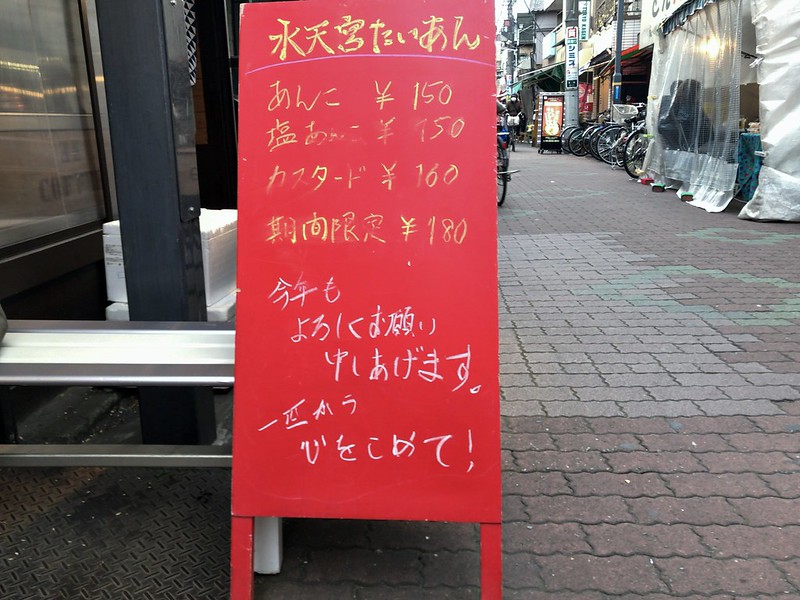 水天宮たいあん
あんこ ¥150
塩あんこ ¥150
カスタード ¥160
期間限定 ¥180
今年も
よろしくお願い
申しあげます。
一匹から
心をこめて!